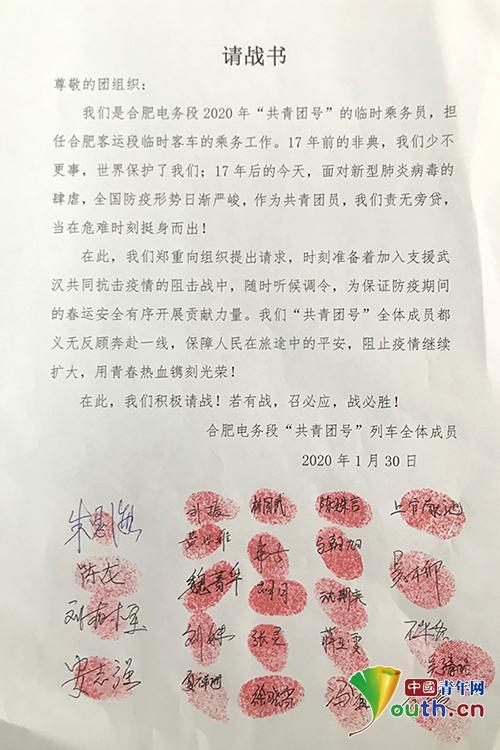 请战书
尊敬的团组织：
我们是合肥电务段2020年“共青团号”的临时乘务员，担
任合肥客运段临时客车的乘务工作。17年前的非典，我们少不
更事，世界保护了我们；17年后的今天，面对新型肺炎病毒的
肆虐，全国防疫形势日渐严峻，作为共青团员，我们责无旁贷，
当在危难时刻挺身而出！
在此，我们郑重向组织提出请求，时刻准备着加入支援武
汉共同抗击疫情的阻击战中，随时听候调令，为保证防疫期间
的春运安全有序开展贡献力量。我们“共青团号”全体成员都
义无反顾奔赴一线，保障人民在旅途中的平安，阻止疫情继续
扩大，用青春热血镌刻光荣！
在此，我们积极请战！若有战，召必应，战必胜！
合肥电务段“共青团号”列车全体成员
2020年1月30日
陈龙
安志强
张灵
中國青年网
youth.cn